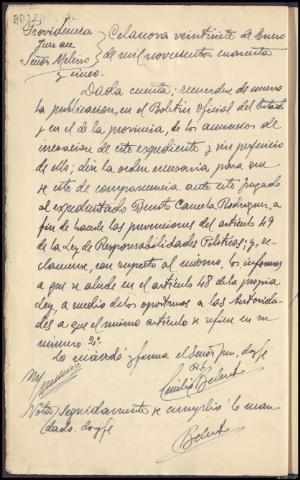 Providencia
Juez
Señor Melero
Celanova veintisiete de Enero
de mil novecientos cuarenta
y cinco.
Dada cuenta; recuerdese de nuevo
la publicacion, en el Boletin Oficial del Estado
y en el de la provincia, de los anuncios de
incoacion de este expediente y sin perjuicio
de ello; dén la orden necesaria, para que
se cite de comparecencia ante este Juzgado
al expedientado Benito Canela Rodriguez, a
fin de hacerle las prevenciones del articulo 49
de la Ley de Responsabilidades Politicas; y, re-
clamense, con respecto al mismo, los informes
a que se alude en el articulo 48 de la propia
Ley, a medio de los oportunos a las Autorida-
des a que el mismo articulo se refiere en su
número 2º.
Lo mandó y firma el Señor Juez, doy fe
Emilio Belert
Nota; Seguidamente se cumplió lo man-
dado. doy fe
Belert